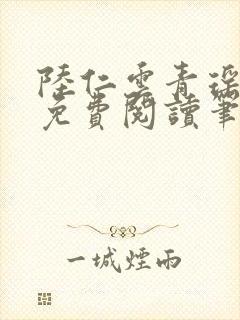 陸仁雲青瑤
免費閱讀筆
一城煙雨